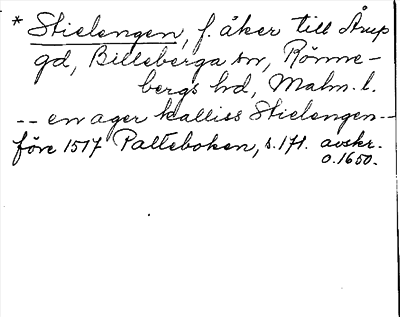 * Stielengen, f. åker till Årup
gd, Billeberga sn, Rönne-
bergs hd, Malm. l.
-- en ager kalliss Stielengen --
före 1517 Palteboken, s. 171. avskr.
o. 1650.